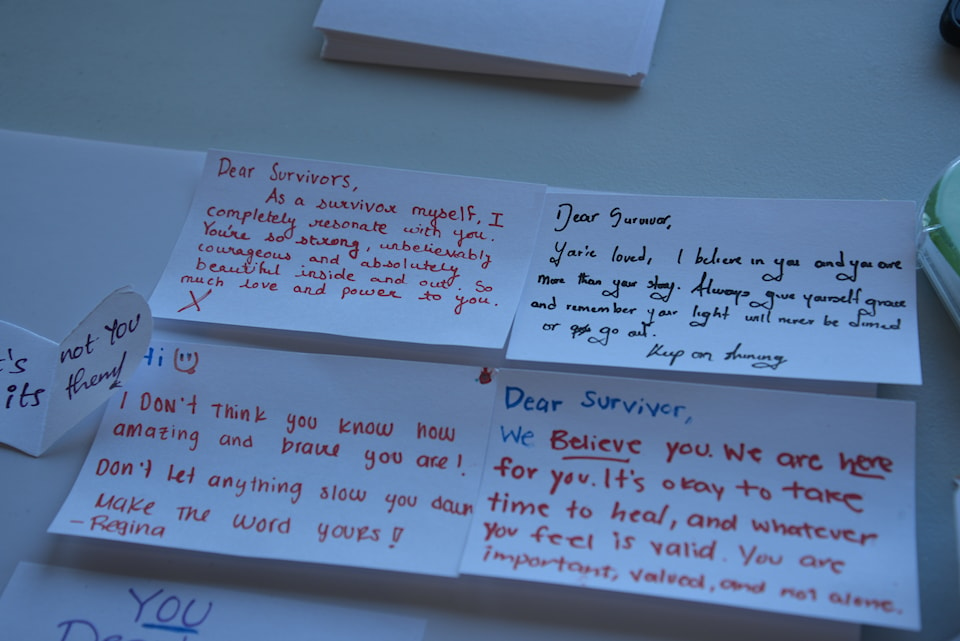 Dear Survivors,
As a survivor myself, I
completely resonate with you.
You're so strong, unbelievably
courageous and absolutely
beautiful inside and out! So
much love and power to you.
X
Dear Survivor,
You're loved, I believe in you and you are
more than your story. Always give yourself grace
and remember your light will never be dimed
or go out.
Keep on shining
not YOU
its them!
Hi
I DON't think you know how
amazing and brave you are!
Don't let anything slow you down
Make the word yours!
- Regina
Dear Survivor,
We Believe you. We are here
for you. It's okay to take
time to heal, and whatever
you feel is valid. You are
important, valued, and not alone.
YOU